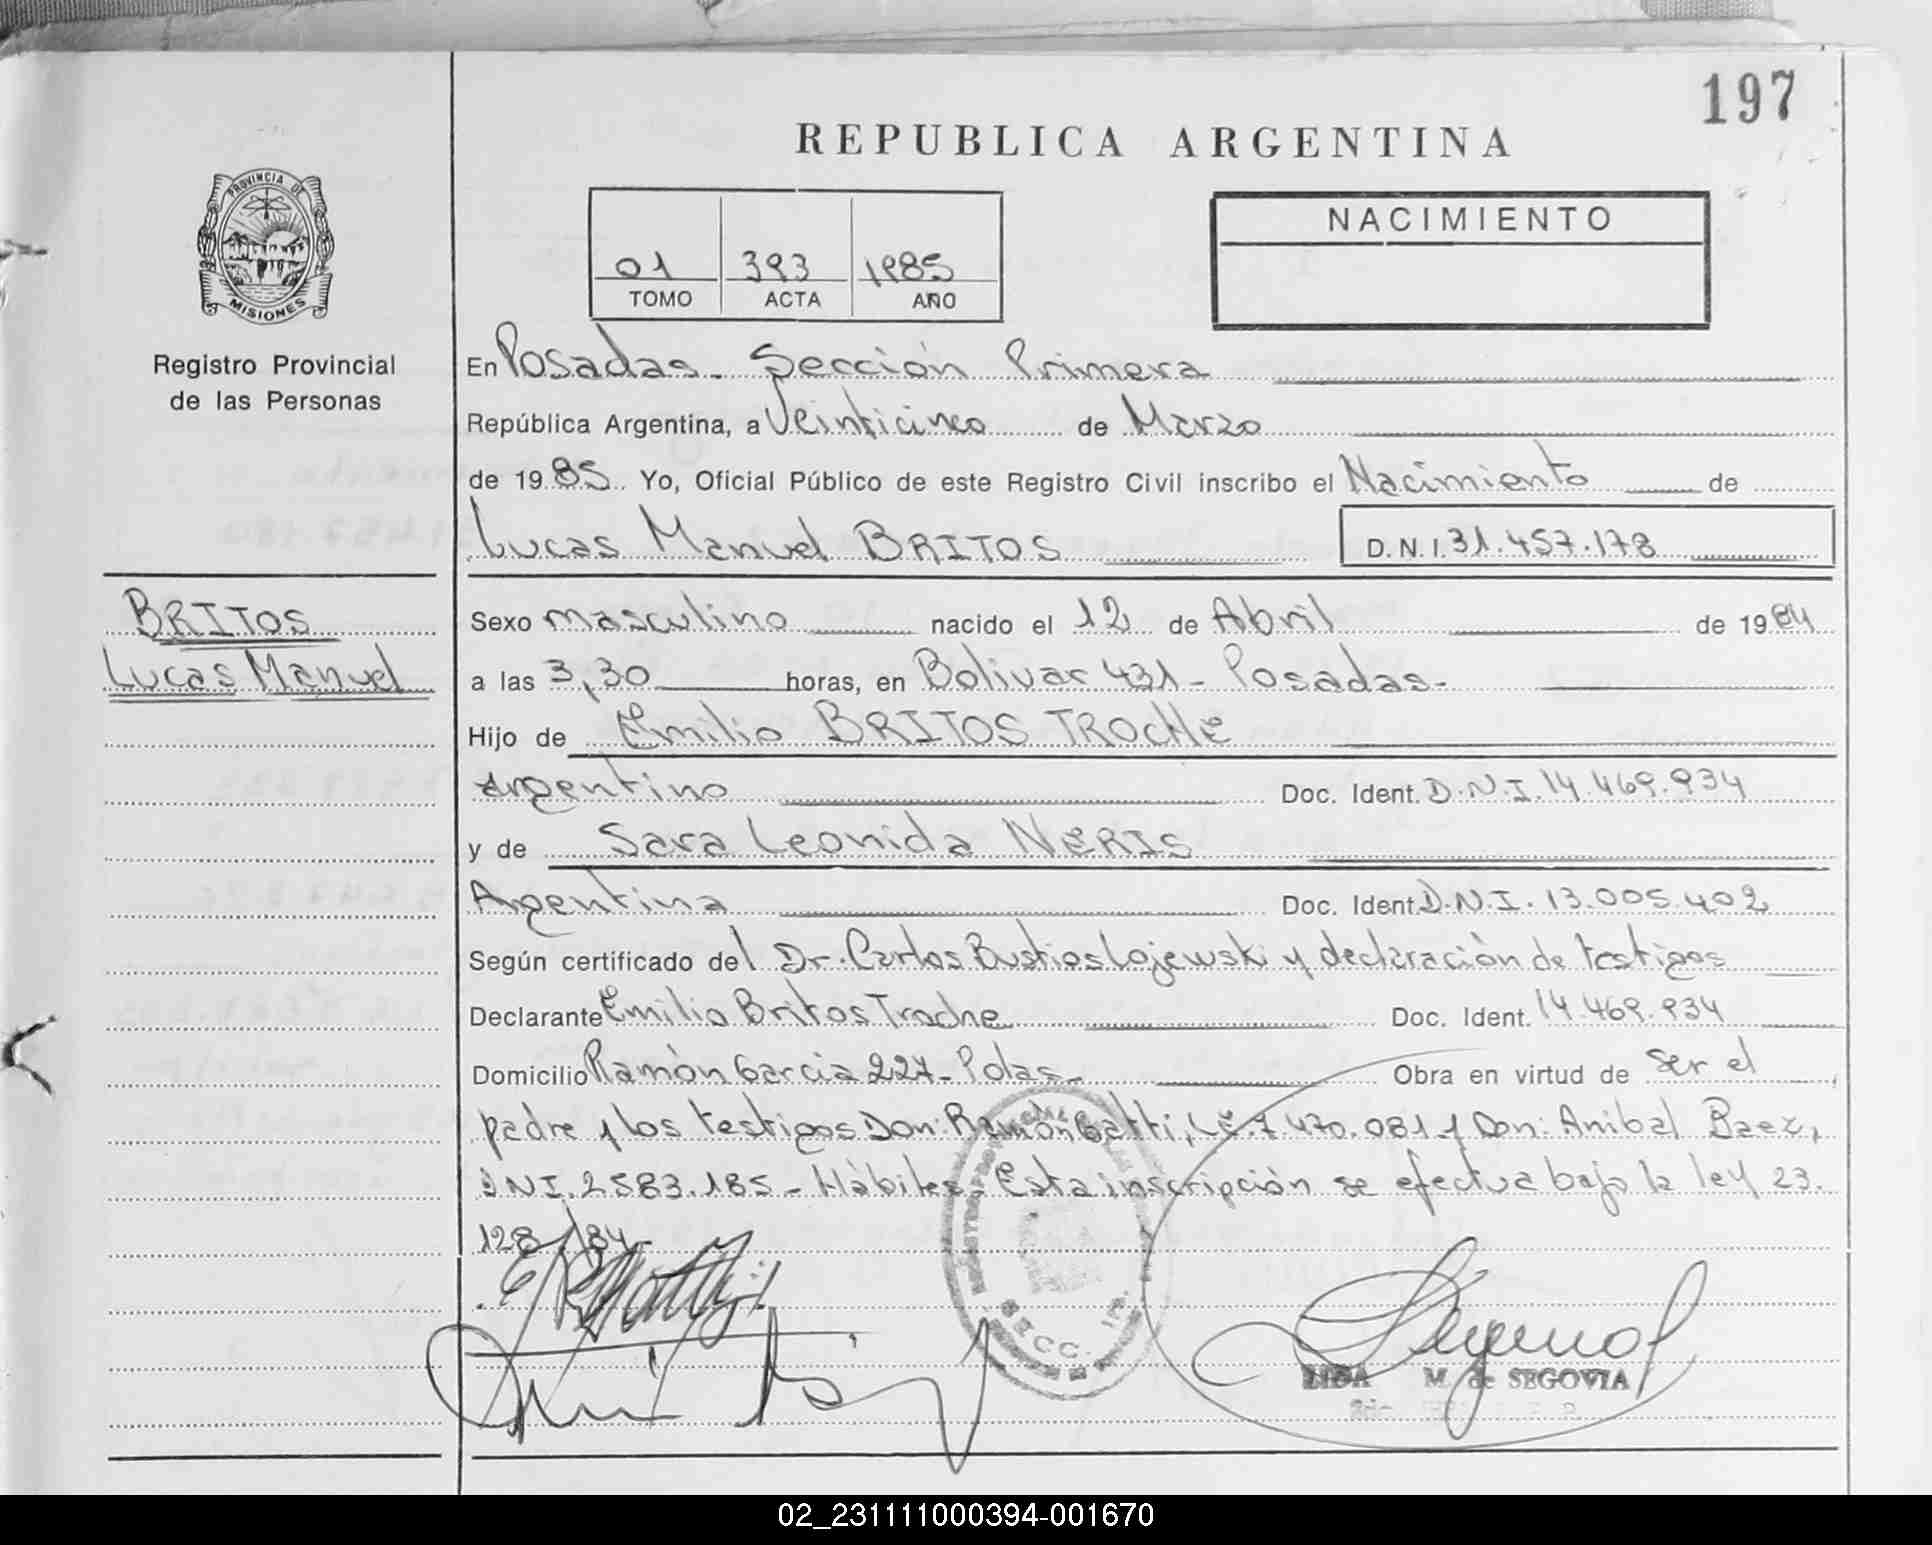 197
REPUBLICA ARGENTINA
PROVINCIA DE
MISIONES
Registro Provincial
de las Personas
01 393 1985
TOMO ACTA AÑO
NACIMIENTO
En Posadas. Sección Primera
República Argentina, a Veinticinco de Marzo
de 1985 Yo, Oficial Público de este Registro Civil inscribo el Nacimiento de
Lucas Manuel BRITOS D.N.I. 31.457.178
BRITOS
Lucas Manuel
Sexo masculino nacido el 12 de Abril de 1984
a las 3,30 horas, en Bolivar 431 - Posadas-
Hijo de Emilio BRITOS TROCHE
argentino Doc. Ident. D.N.I. 14.469.934
y de Sara Leonida NERIS
Argentina Doc. Ident. D.N.I. 13.005.402
Según certificado del Dr. Carlos Bustios Lojewski y declaración de testigos
Declarante Emilio Britos Troche Doc. Ident. 14.469.934
Domicilio Ramón Garcia 227 - Pdas- Obra en virtud de ser el
padre y los testigos Don: Ramón Gatti, L.E. 7.470.081 y Don: Anibal Baez,
DNI. 2583.185 - Hàbiles. Esta inscripción se efectua bajo la ley 23.
128/84-
SECC. 1ra.
M. de SEGOVIA
02_231111000394-001670